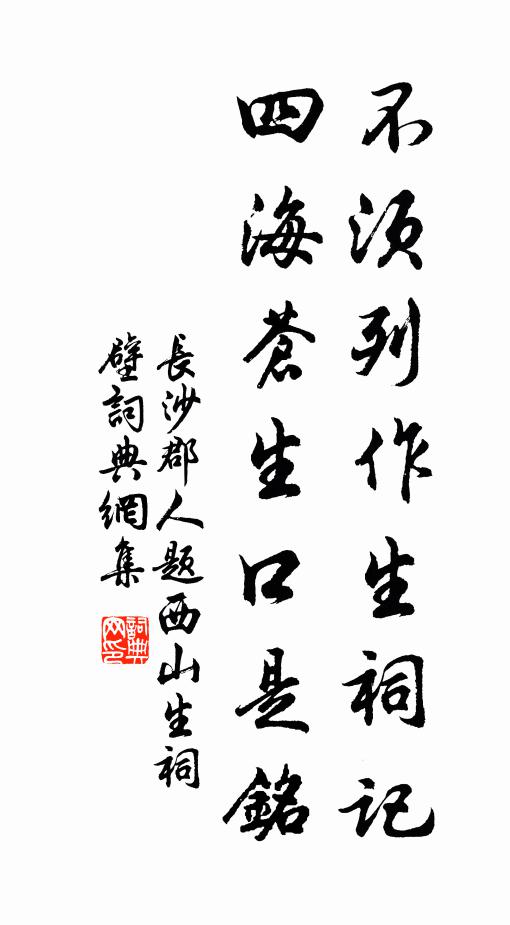 不须列作生祠記
四海蒼生口是銘
長沙郡人題西山生祠
壁詞典網集
詞典
网印